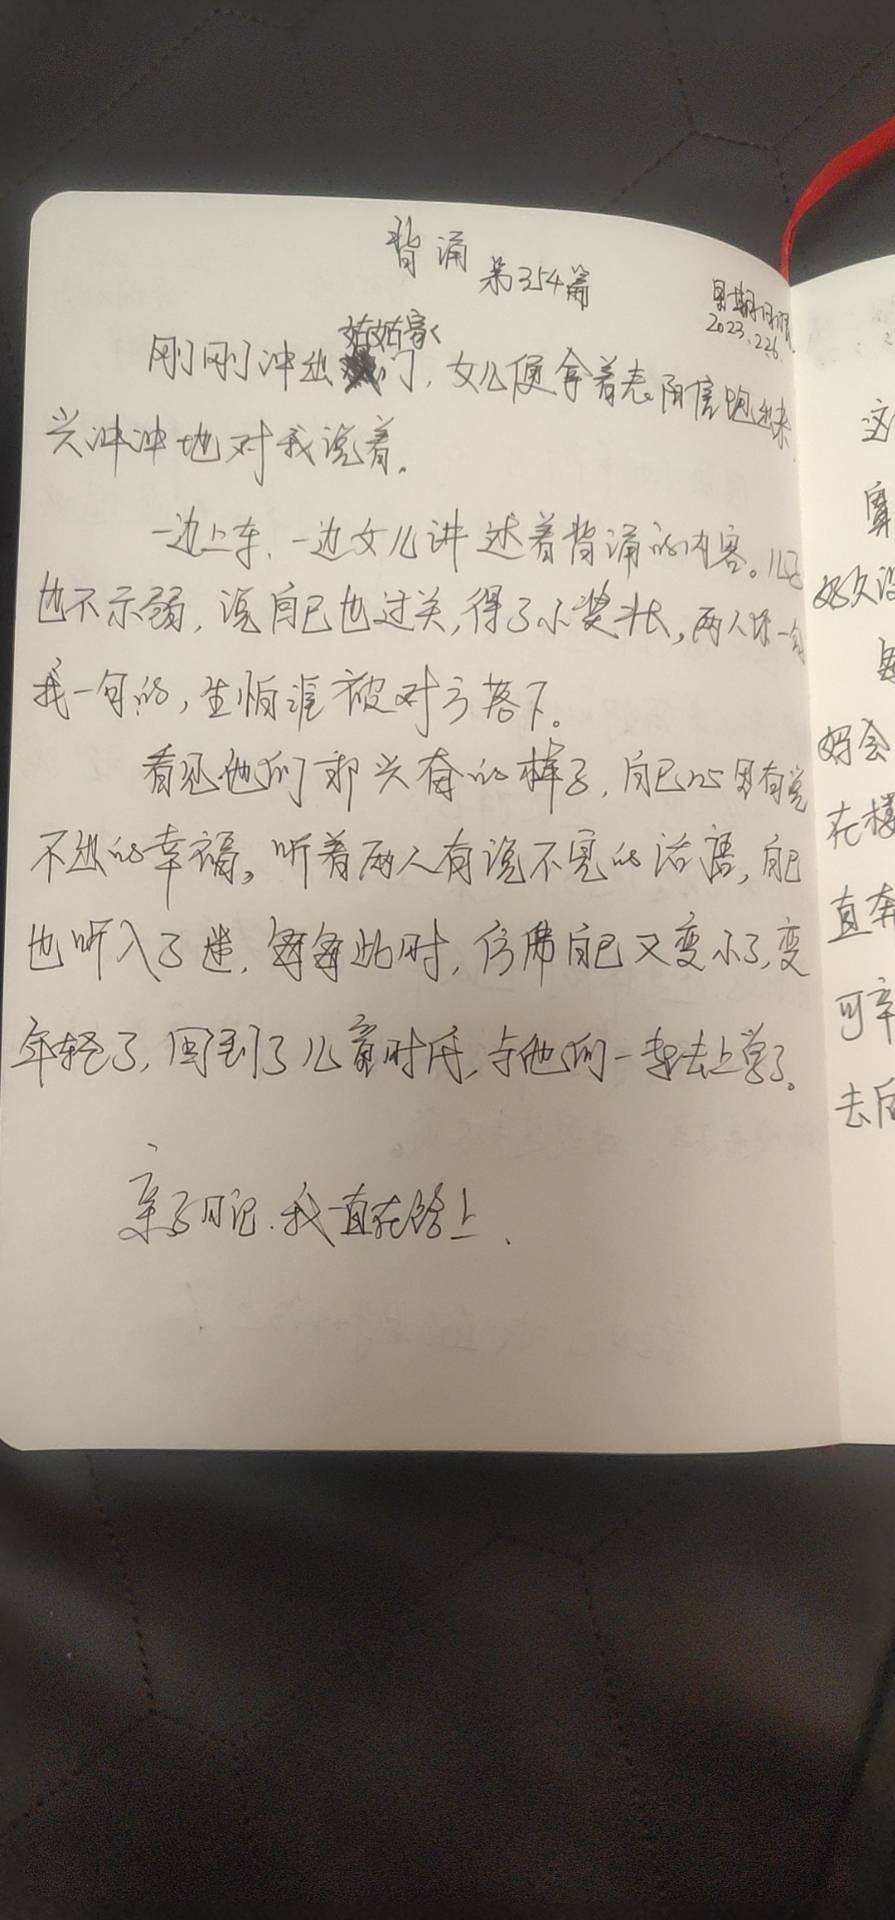 背诵 第354篇
星期日 晴
2023.2.26.
姑姑家
刚刚冲出门，女儿便拿着表扬信跑出来，
兴冲冲地对我说着。
一边上车，一边女儿讲述着背诵的内容。儿子
也不示弱，说自己也过关，得了小奖状，两人你一句
我一句的，生怕谁被对方落下。
看见他们那兴奋的样子，自己心里有说
不出的幸福。听着两人有说不完的话语，自己
也听入了迷，每每此时，仿佛自己又变小了，变
年轻了，回到了儿童时候，与他们一起去上学了。
亲子日记，我一直在路上.
这
好久没
好会
在楼
直奔
可辛
去后